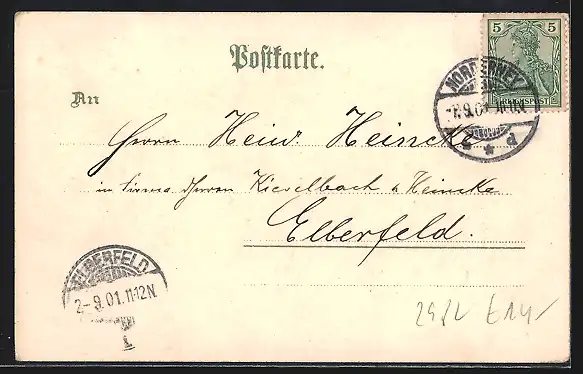 Postkarte.
5 5
REICHSPOST
NORDERNEY
9.01. 11-12N.
An
Herrn Heinr. Heincke
in Firma Herren Kievelbach & Heincke
Elberfeld.
ELBERFELD
2-9.01.11-12N.
1